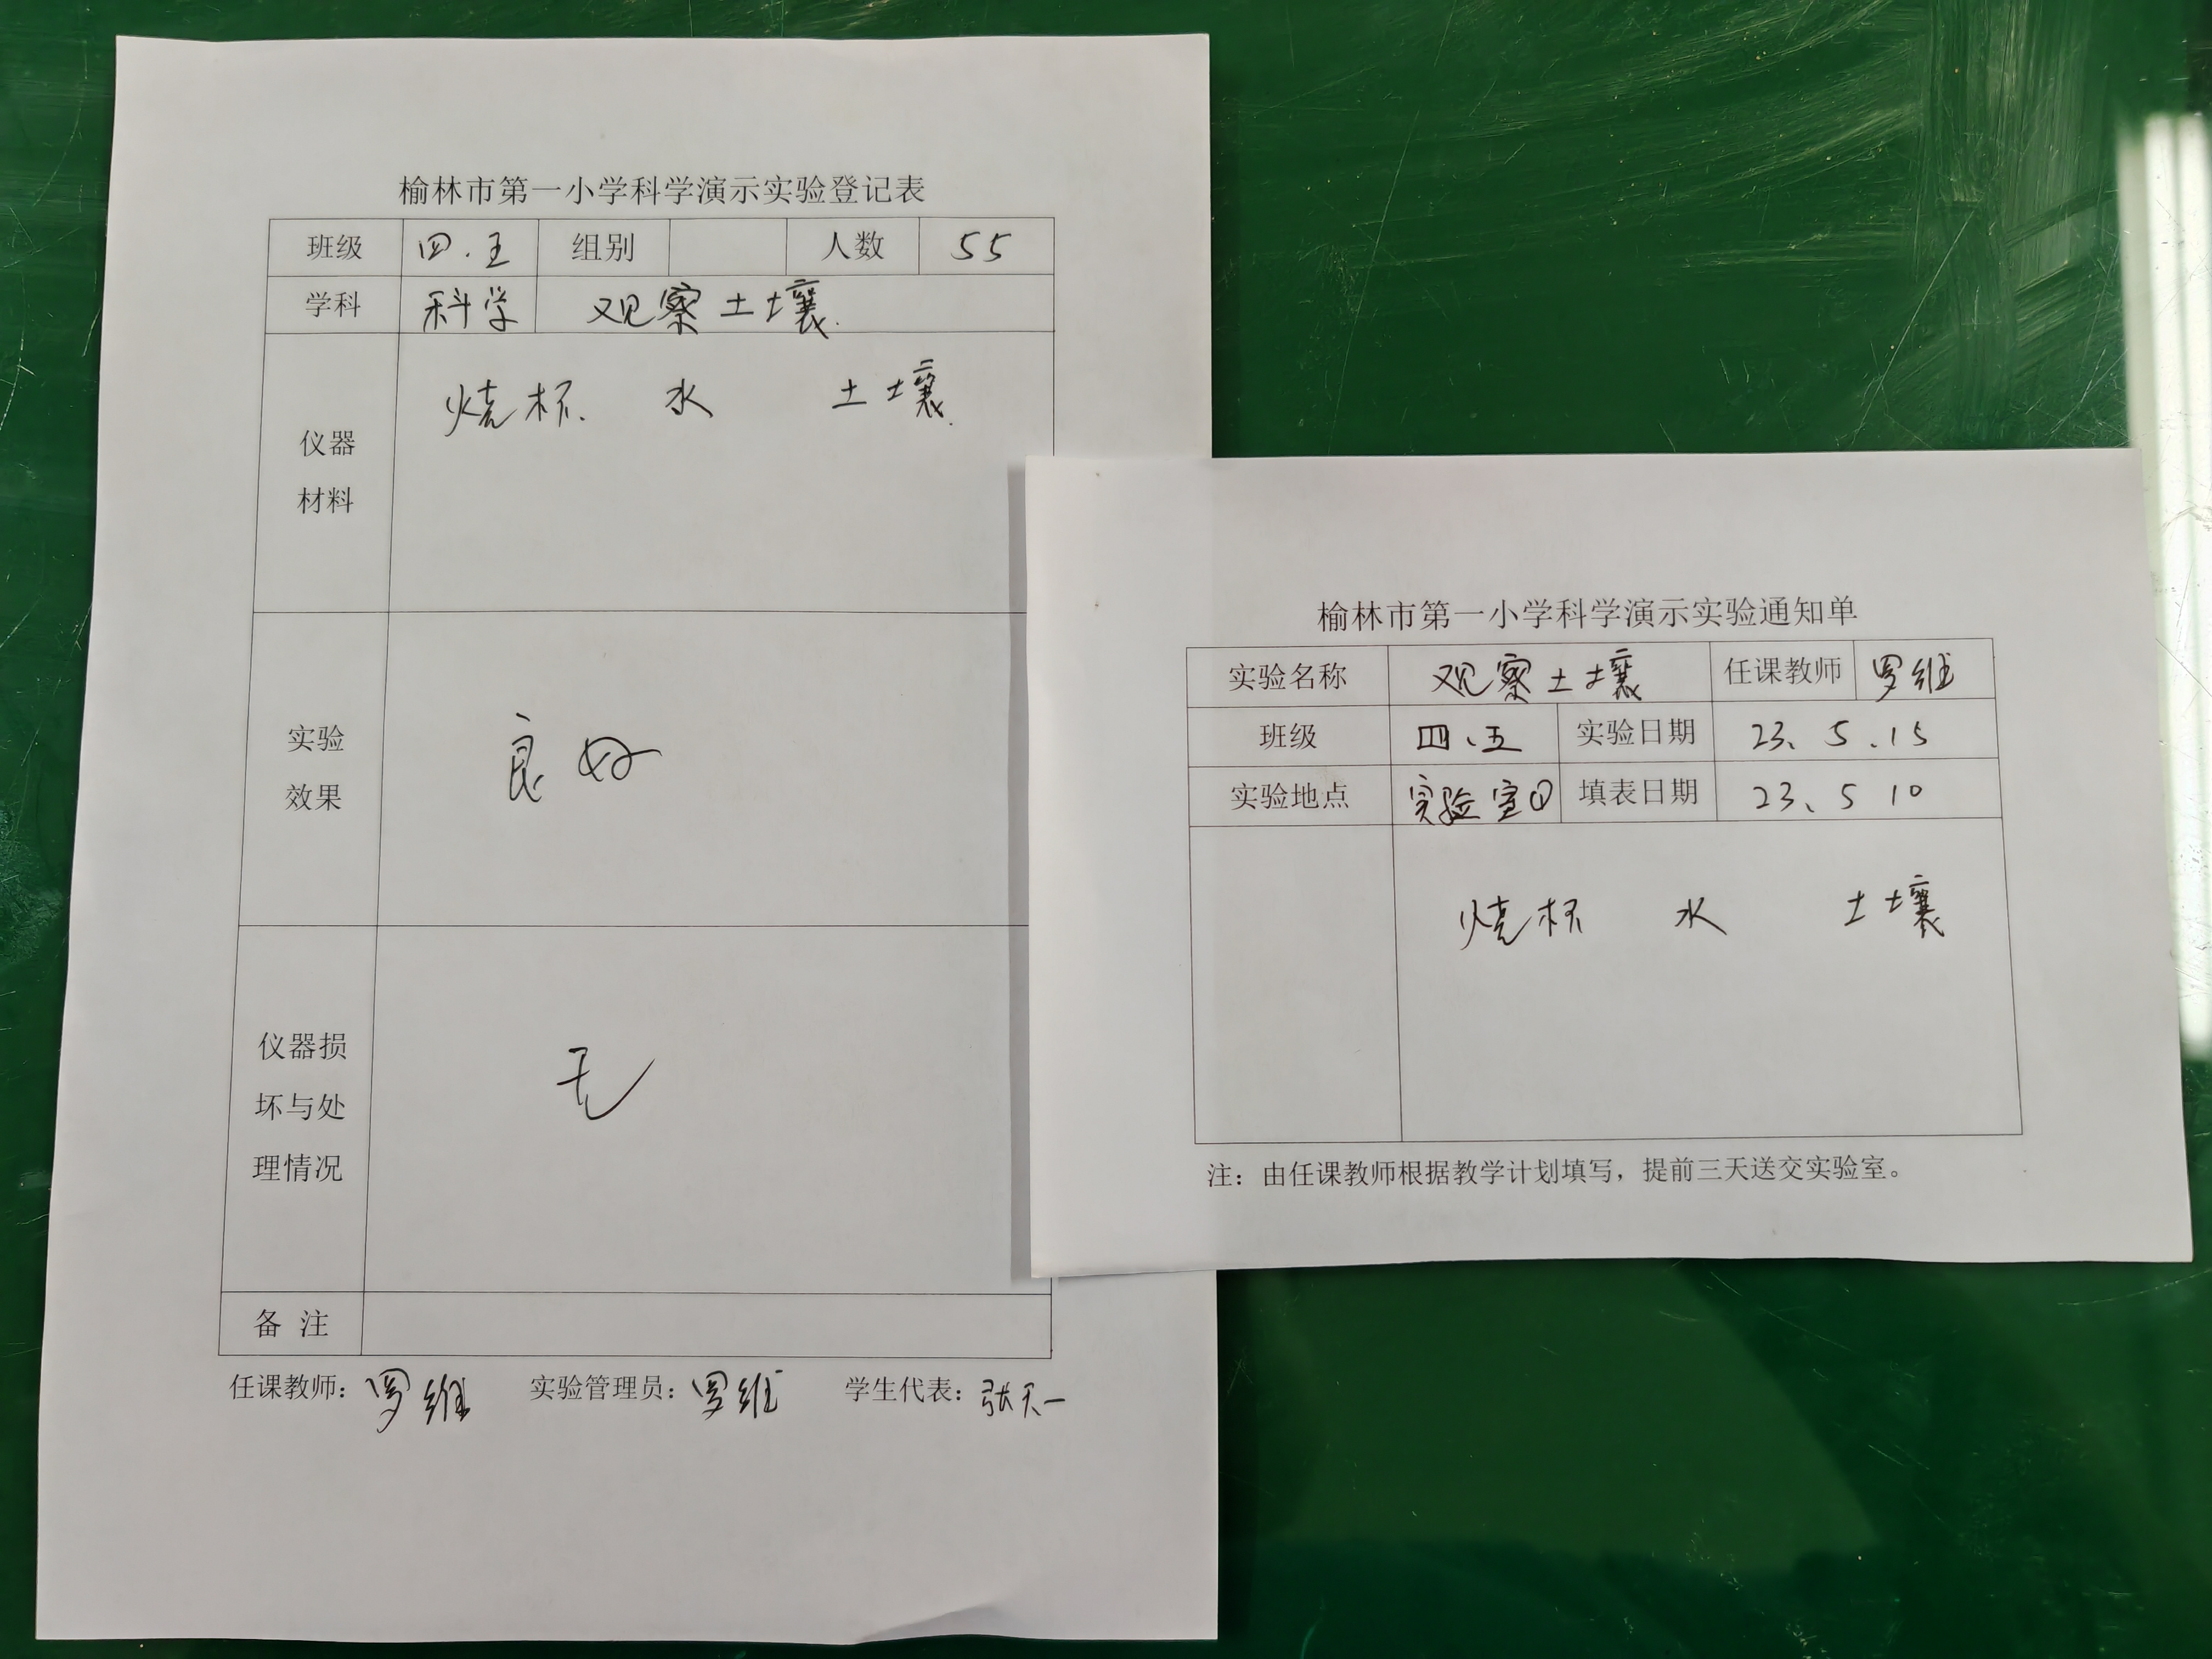 榆林市第一小学科学演示实验登记表
班级 四.五 组别 人数 55
学科 科学 观察土壤.
仪器
材料
烧杯. 水 土壤.
实验
效果
良好
仪器损
坏与处
理情况
无
备 注
任课教师：罗维 实验管理员：罗维 学生代表：张天一
榆林市第一小学科学演示实验通知单
实验名称 观察土壤 任课教师 罗维
班级 四、五 实验日期 23、5.15
实验地点 实验室① 填表日期 23、5 10
烧杯 水 土壤
注：由任课教师根据教学计划填写，提前三天送交实验室。